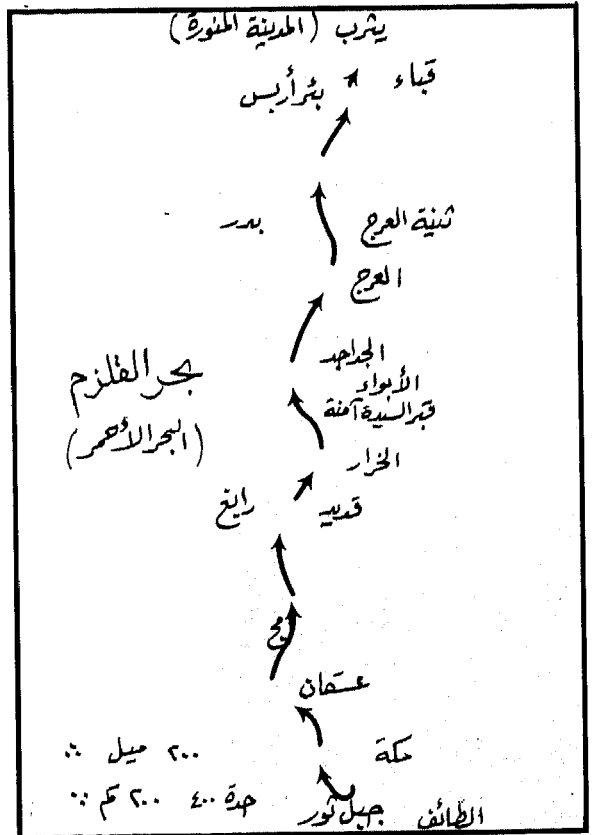 يثرب (المدينة المنورة)
قباء
بئر أريس
ثنية العرج
بدر
العرج
الجداجد
الأبواء
قبر السيدة آمنة
بحر القلزم
(البحر الأحمر)
الخرار
قديد
رابغ
أمج
عسفان
مكة
٢٠٠ ميل
جدة ٤٠٠ ٢٠٠ كم
الطائف
جبل ثور